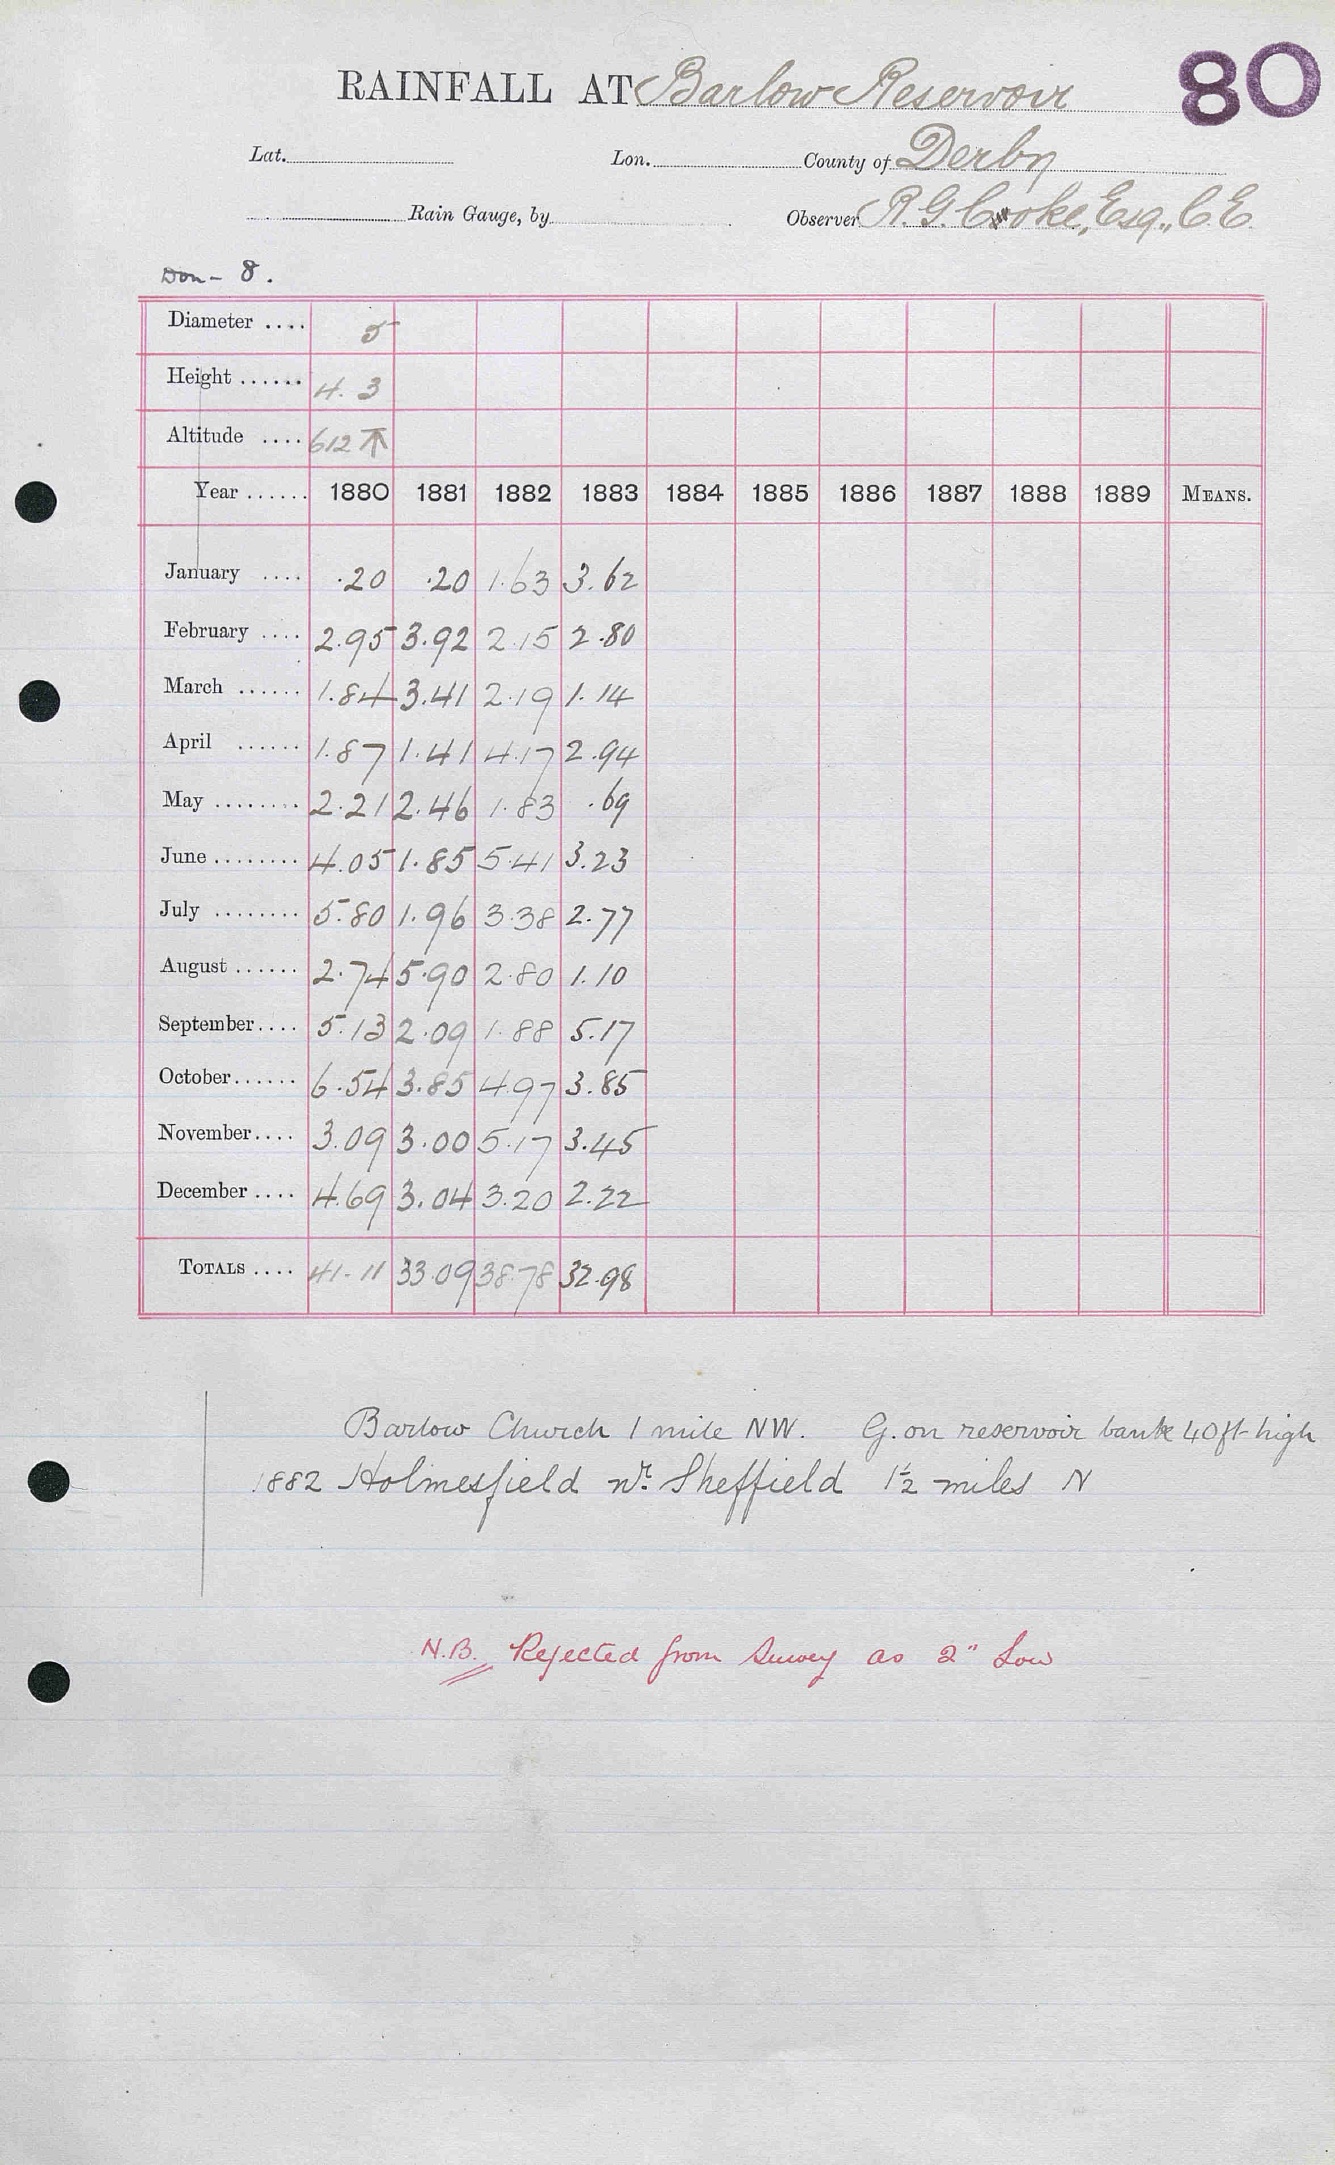 RAINFALL AT Barlow Reservoir 80
Lat. Lon. County of Derby
Rain Gauge, by Observer R. G. Cooke, Esq., C.E.
Don - 8.
Diameter .... 5
Height ...... 4. 3
Altitude .... 612
Year ...... 1880 1881 1882 1883 1884 1885 1886 1887 1888 1889 MEANS.
January .... .20 .20 1.63 3.62
February .... 2.95 3.92 2.15 2.80
March ...... 1.84 3.41 2.19 1.14
April ...... 1.87 1.41 4.17 2.94
May ........ 2.21 2.46 1.83 .69
June ........ 4.05 1.85 5.41 3.23
July ........ 5.80 1.96 3.38 2.77
August ...... 2.74 5.90 2.80 1.10
September.... 5.13 2.09 1.88 5.17
October...... 6.54 3.85 4.97 3.85
November.... 3.09 3.00 5.17 3.45
December .... 4.69 3.04 3.20 2.22
TOTALS .... 41.11 33.09 38.78 32.98
Barlow Church 1 mile NW. G. on reservoir bank 40ft high
1882 Holmesfield nr. Sheffield 1½ miles N
N.B. Rejected from Survey as 2" Low